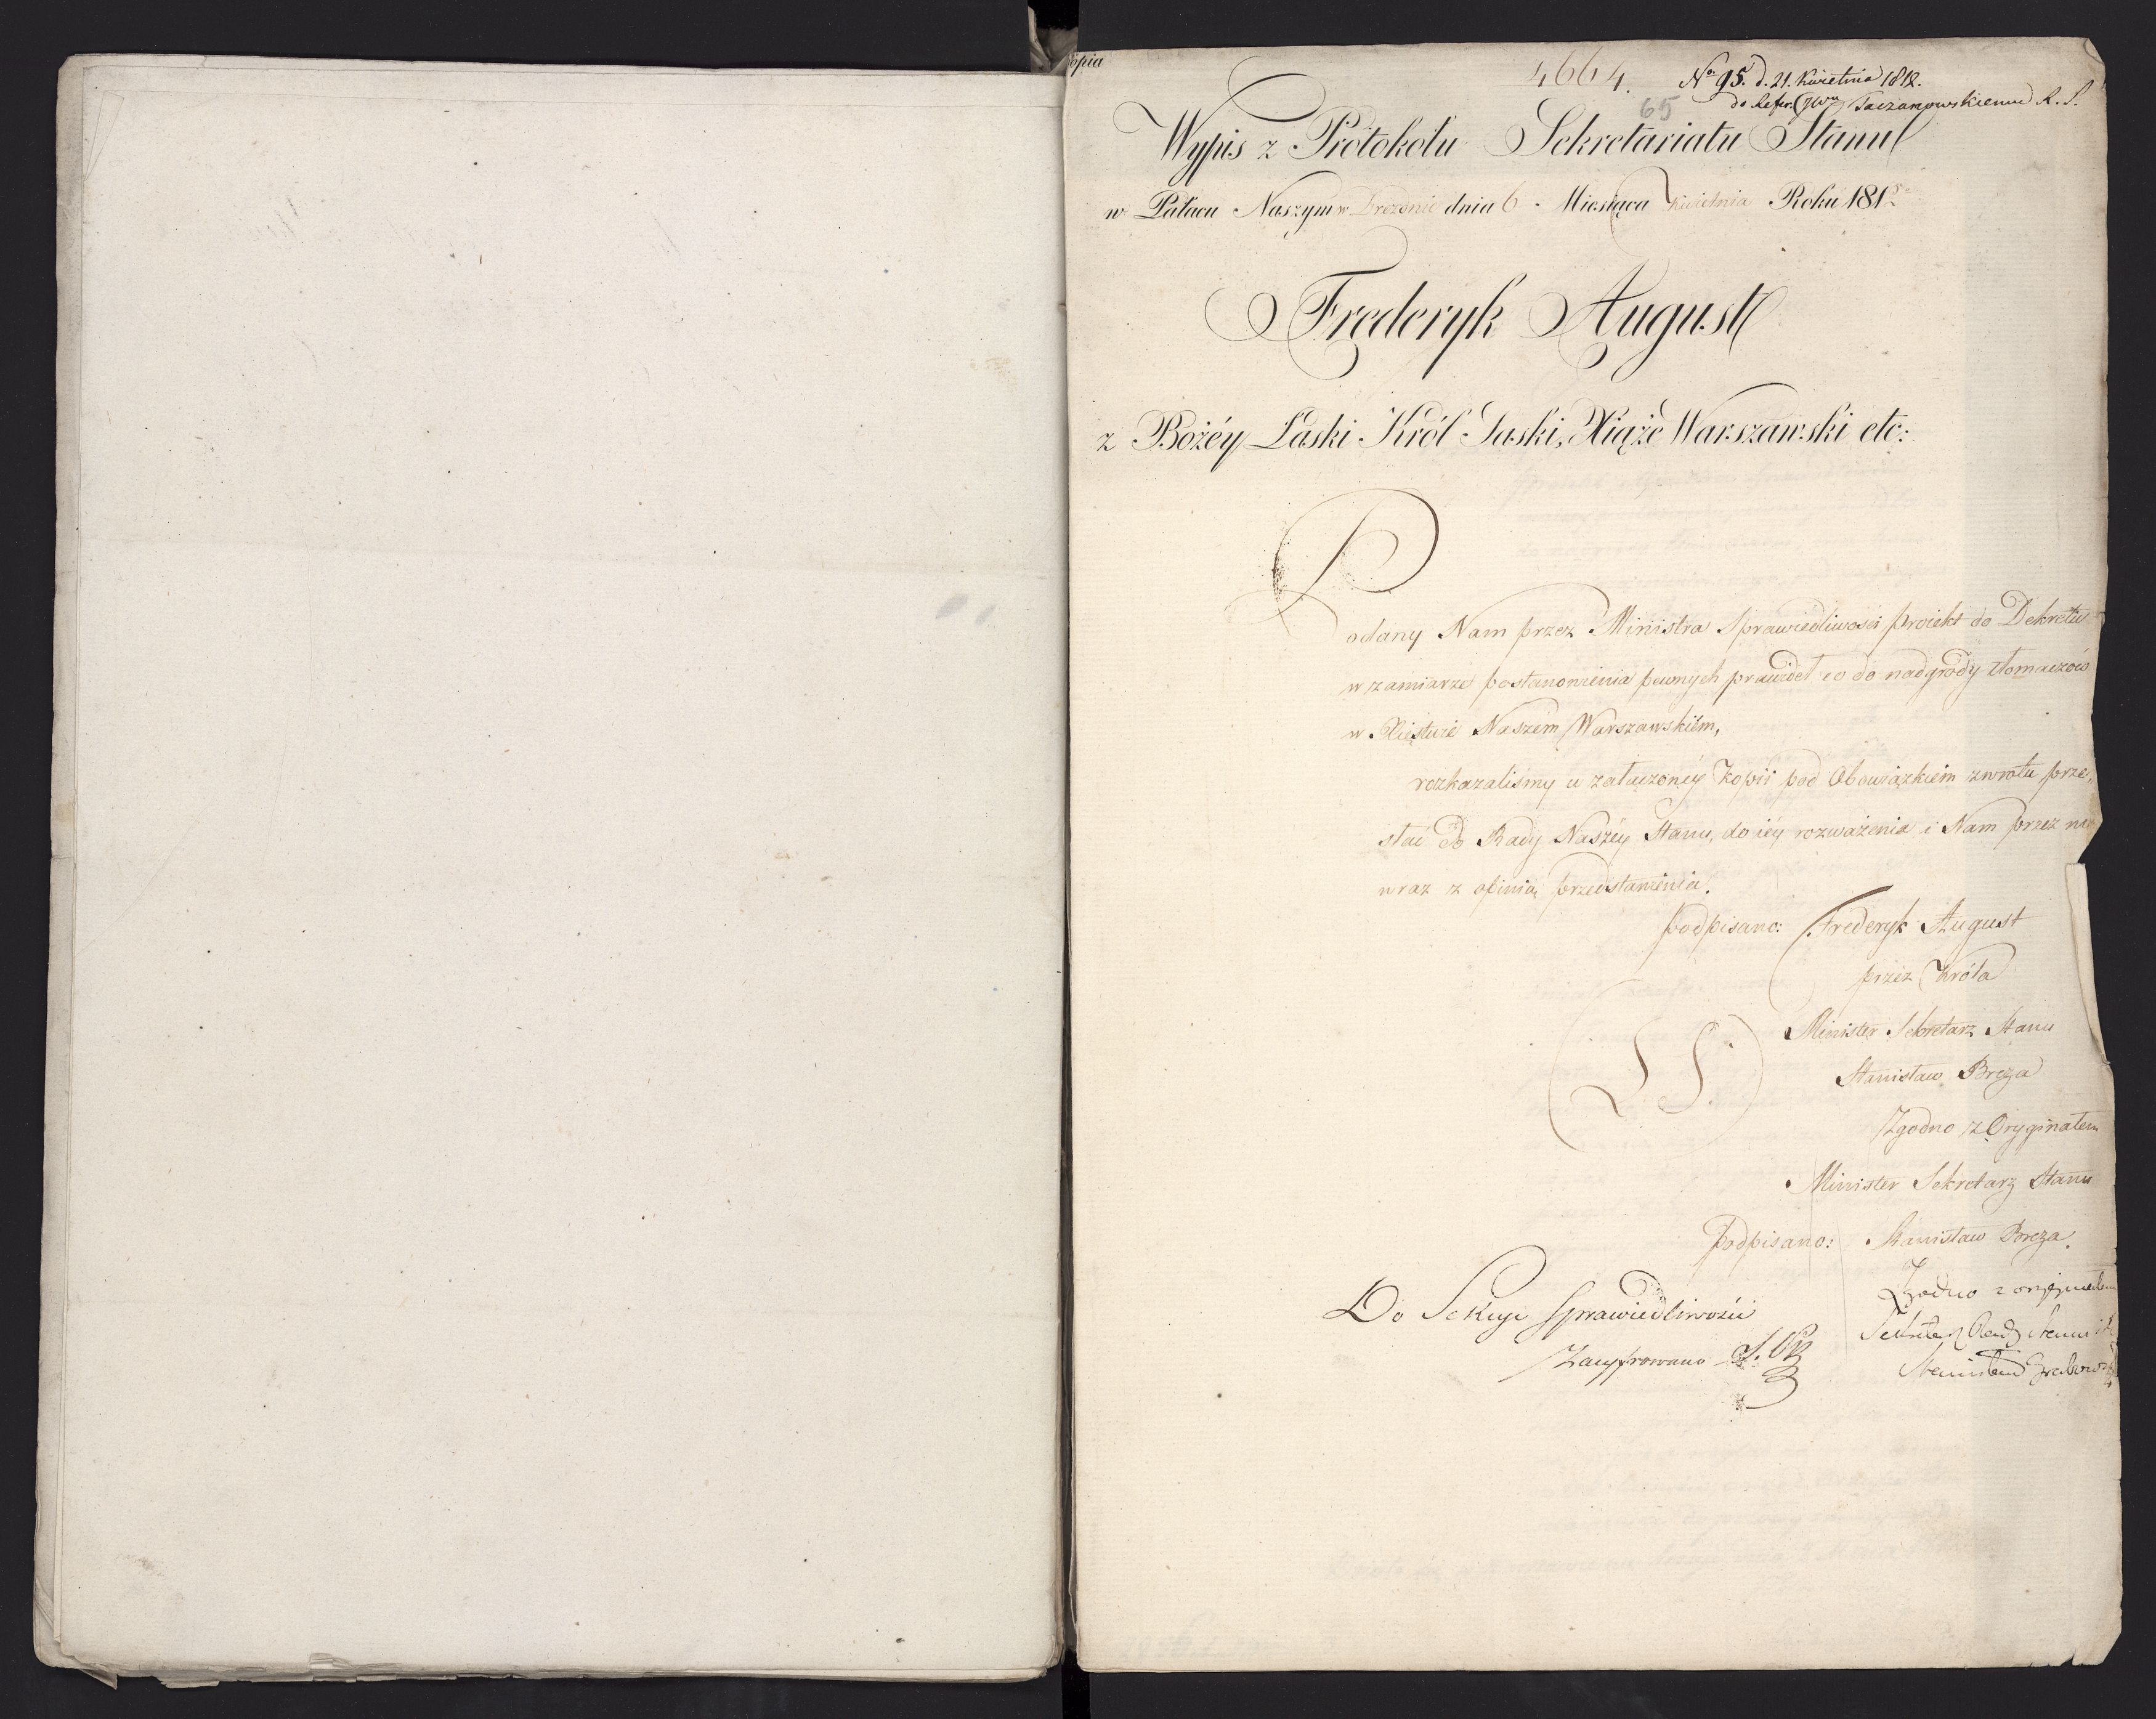 opia
4664. No 95. d. 21. Kwietnia 1812.
65 do Refer. JWu Taczanowskiemu R. S.
Wypis z Protokołu Sekretariatu Stanu
w Pałacu Naszym w Dreznie dnia 6. Miesiąca Kwietnia Roku 1812
Fręderyk August
z Bożéy Łaski Król Saski, Xiąże Warszawski etc:
Podany Nam przez Ministra Sprawiedliwości Proiekt do Dekretu
w zamiarze postanowienia pewnych prawideł co do nadgrody tłomaczów
w Xięstwie Naszem Warszawskiem,
rozkazaliśmy w załączonéy kopii pod Obowiązkiem zwrotu prze,
słać do Rady Naszéy Stanu, do iéy rozważenia i Nam przez nią
wraz z opinią przedstawienia.
podpisano: Frederyk August
przez Króla
Minister Sekretarz Stanu
(L S.)
Stanisław Breza
Zgodno z Oryginałem
Minister Sekretarz Stanu
podpisano: Stanisław Breza
Zgodno z oryginałem
Do Sekcyi Sprawiedliwości
Sekretarz Rady Stanu
Zacyfrowano
Stanisław Grabowski